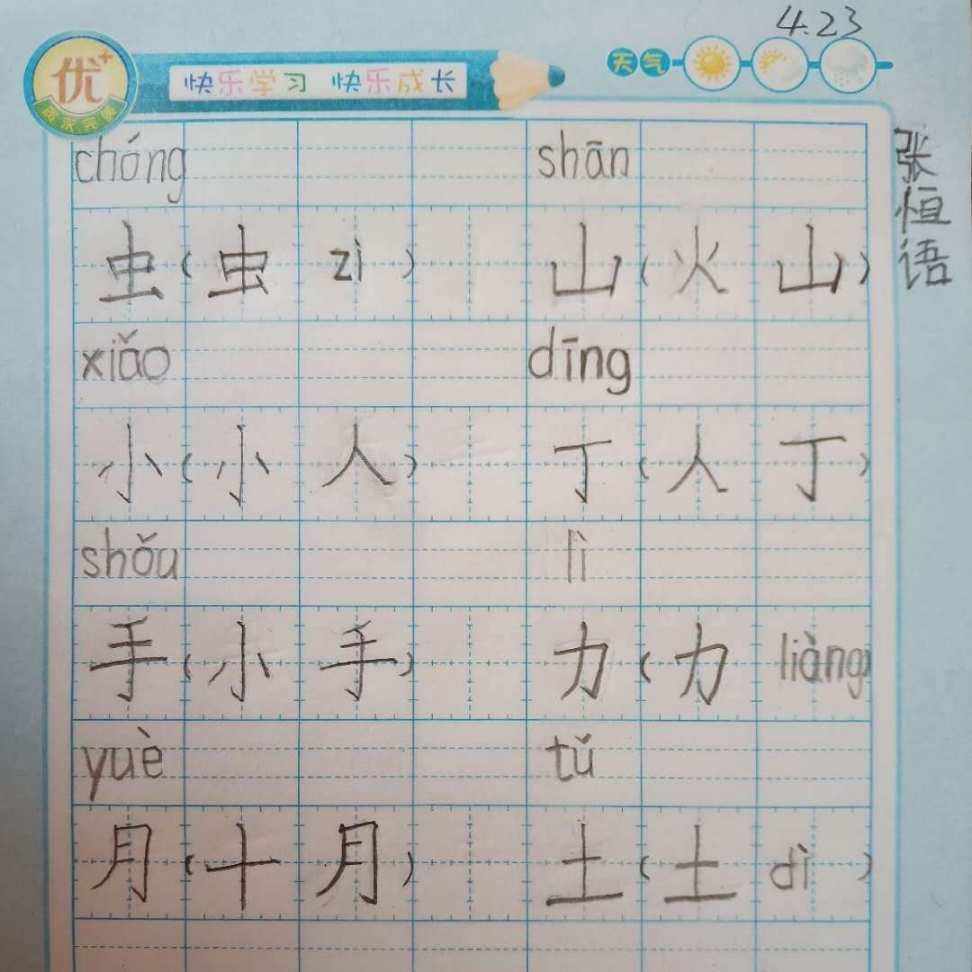 4.23
优+
快乐学习 快乐成长
天气
张恒语
chóng shān
虫(虫 zi) 山(火山)
xiǎo dīng
小(小人) 丁(人丁)
shǒu lì
手(小手) 力(力 liàng)
yuè tǔ
月(十月) 土(土 dì)